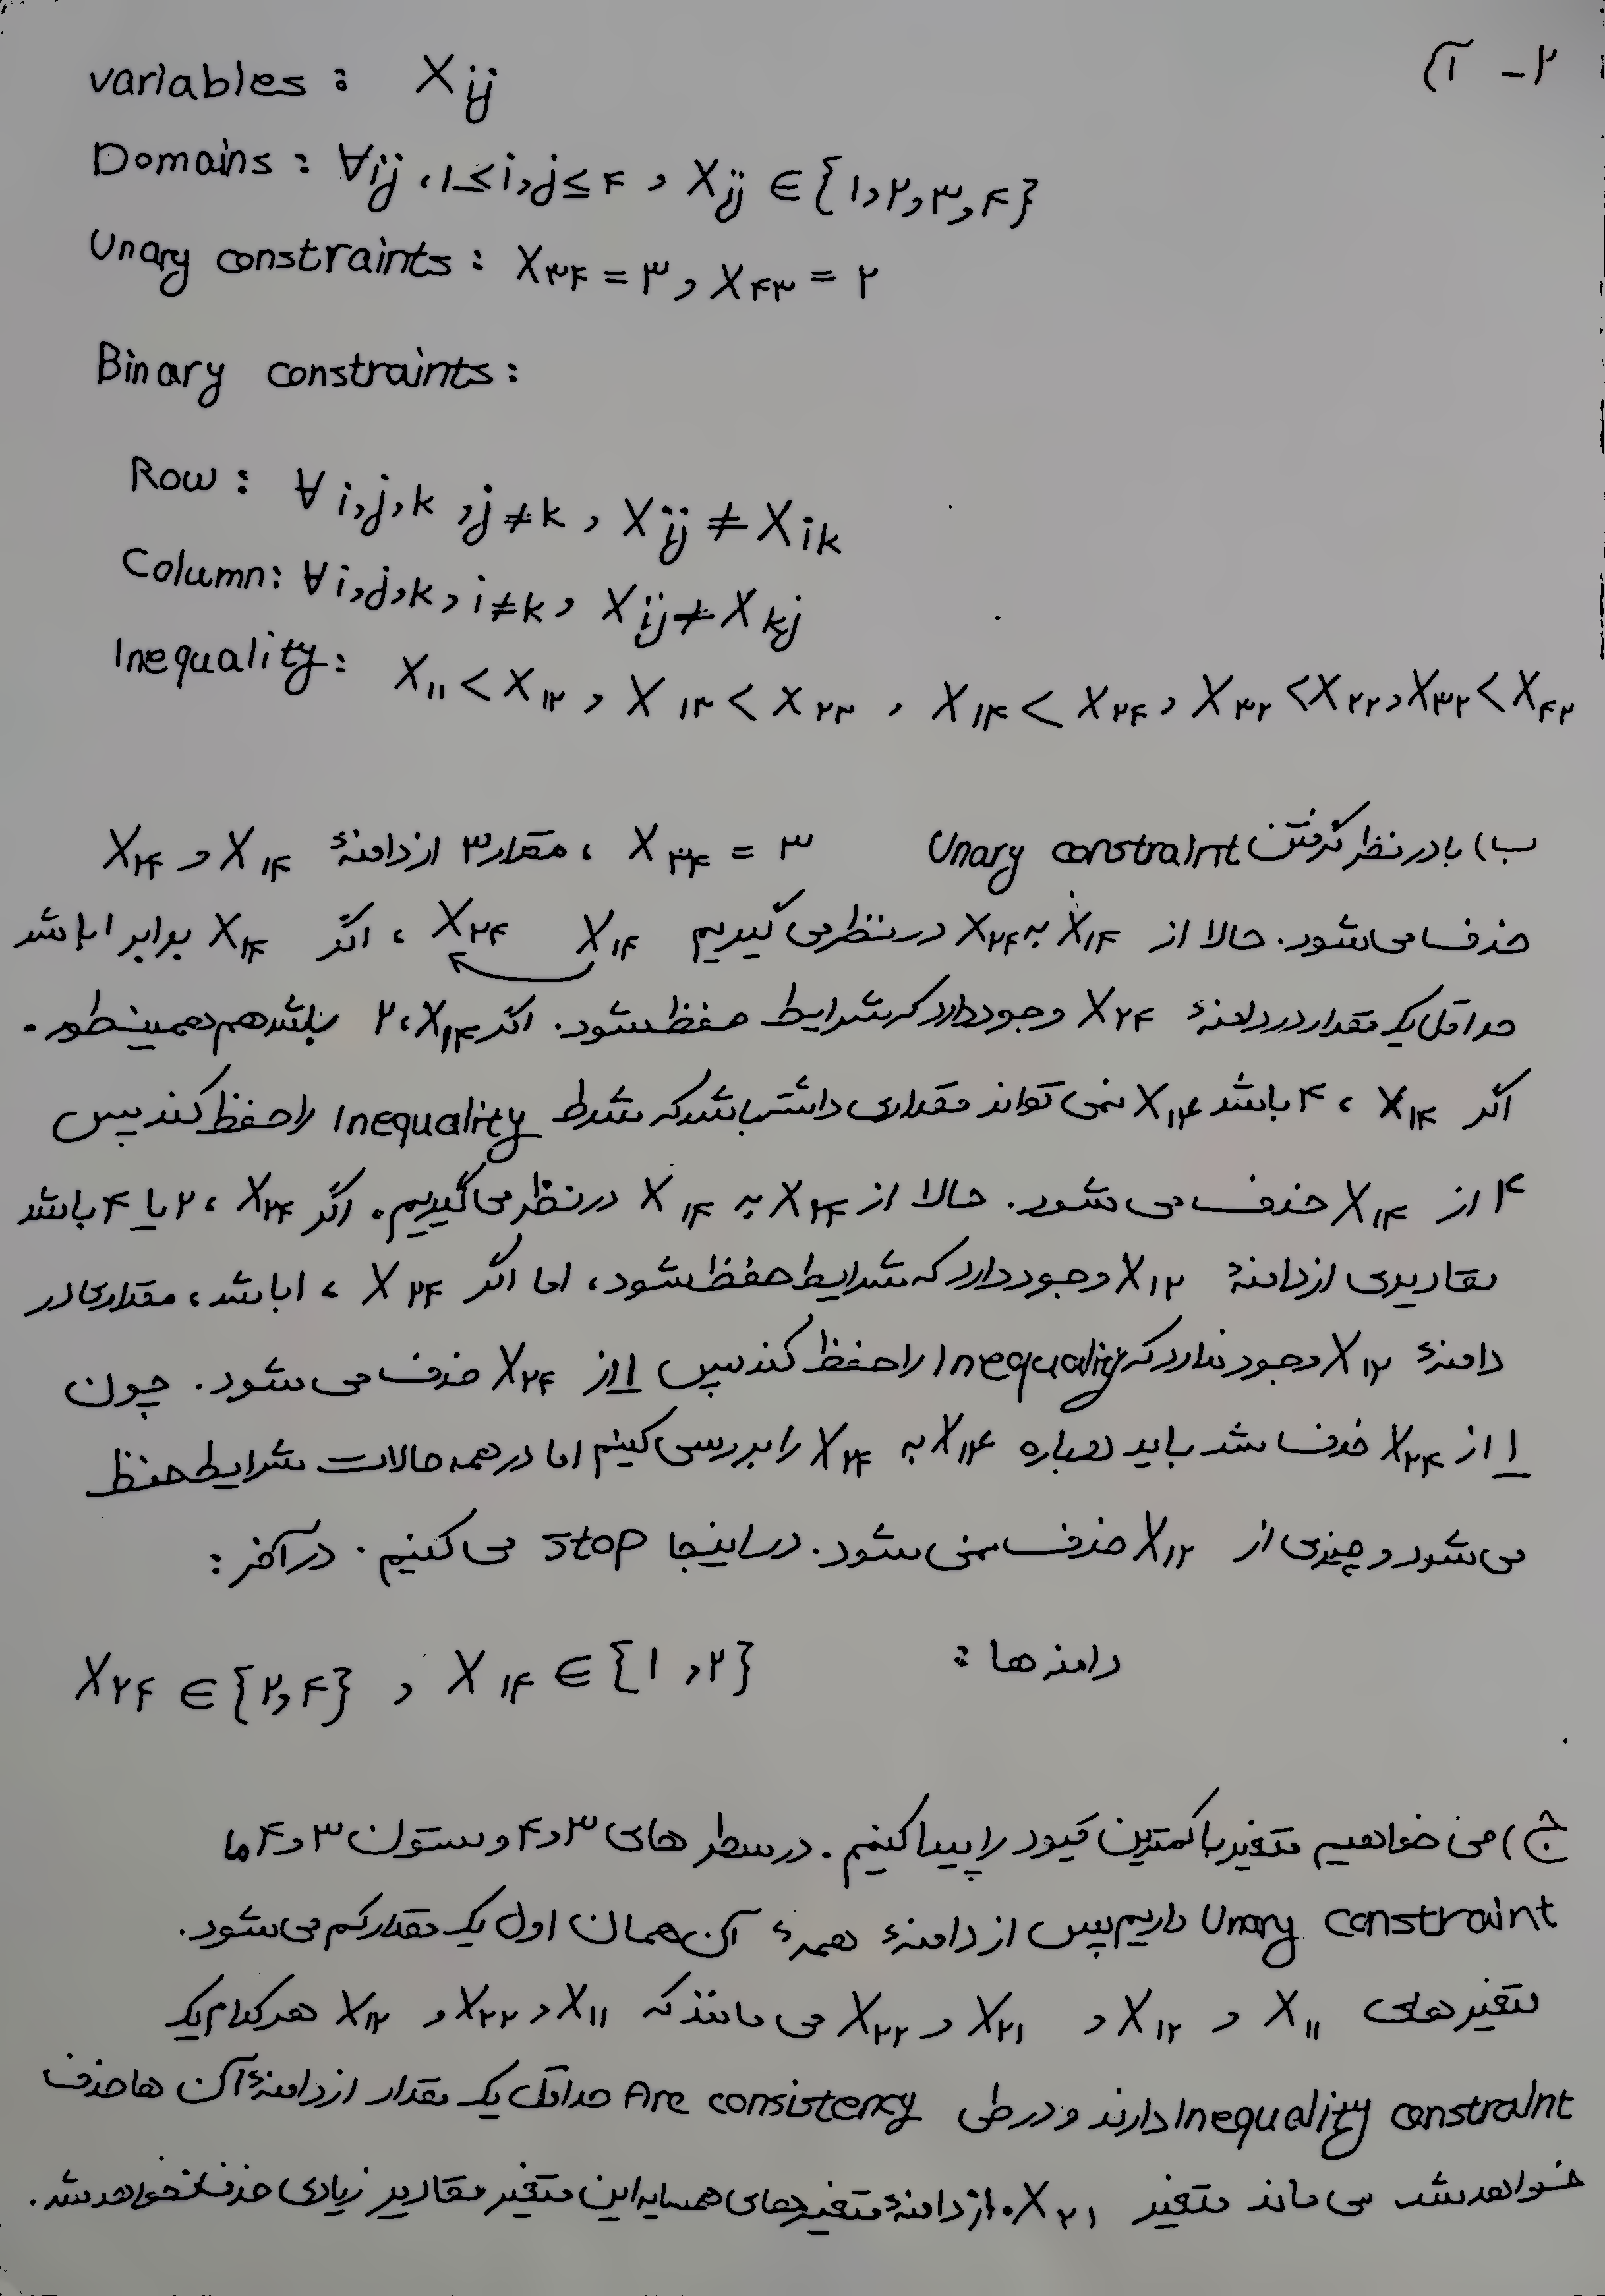 ۲- آ)
variables: Xij
Domains: ∀ij ، ۱≤i,j≤۴ , Xij ∈ {۱,۲,۳,۴}
Unary constraints: X۳۴ = ۳ , X۴۳ = ۲
Binary constraints:
Row: ∀ i,j,k ,j≠k , Xij ≠ Xik
Column: ∀ i,j,k , i≠k , Xij ≠ Xkj
Inequality: X۱۱ < X۱۲ , X۱۳ < X۲۳ , X۱۴ < X۲۴ , X۳۲ < X۲۲ , X۳۲ < X۴۲
ب) با در نظر گرفتن Unary constraint X۳۴ = ۳ ، مقدار ۳ از دامنهٔ X۱۴ و X۲۴
حذف می‌شود. حالا از X۱۴ به X۲۴ در نظر می گیریم X۱۴ X۲۴ ، اگر X۱۴ برابر ۱ باشد
حداقل یک مقدار در دامنهٔ X۲۴ وجود دارد که شرایط حفظ شود. اگر X۱۴ ، ۲ باشد هم همینطور.
اگر X۱۴ ، ۴ باشد X۱۴ نمی تواند مقداری داشته باشد که شرط Inequality را حفظ کند پس
۴ از X۱۴ حذف می شود. حالا از X۲۴ به X۱۴ در نظر می گیریم. اگر X۲۴ ، ۲ یا ۴ باشد
مقادیری از دامنهٔ X۱۲ وجود دارد که شرایط حفظ شود، اما اگر X۲۴ ، ۱ باشد، مقداری در
دامنهٔ X۱۲ وجود ندارد که Inequality را حفظ کند پس ۱ از X۲۴ حذف می شود. چون
۱ از X۲۴ حذف شد باید دوباره X۱۴ به X۲۴ را بررسی کنیم اما در همه حالات شرایط حفظ
می شود و چیزی از X۱۲ حذف نمی شود. در اینجا stop می کنیم. در آخر:
دامنه ها: X۲۴ ∈ {۲,۴} , X۱۴ ∈ {۱,۲}
ج) می خواهیم متغیر با کمترین قیود را پیدا کنیم. در سطر های ۳ و ۴ و ستون ۳ و ۴ ما
Unary constraint داریم پس از دامنهٔ همهٔ آن همان اول یک مقدار کم می شود.
متغیر هایی X۱۱ و X۱۲ و X۲۱ و X۲۲ می مانند که X۱۱ و X۲۲ و X۱۲ هر کدام یک
Inequality constraint دارند و در طی Arc consistency حداقل یک مقدار از دامنهٔ آن ها حذف
خواهد شد می ماند متغیر X۲۱. از دامنهٔ متغیر های همسایه این متغیر مقادیر زیادی حذف نخواهد شد.